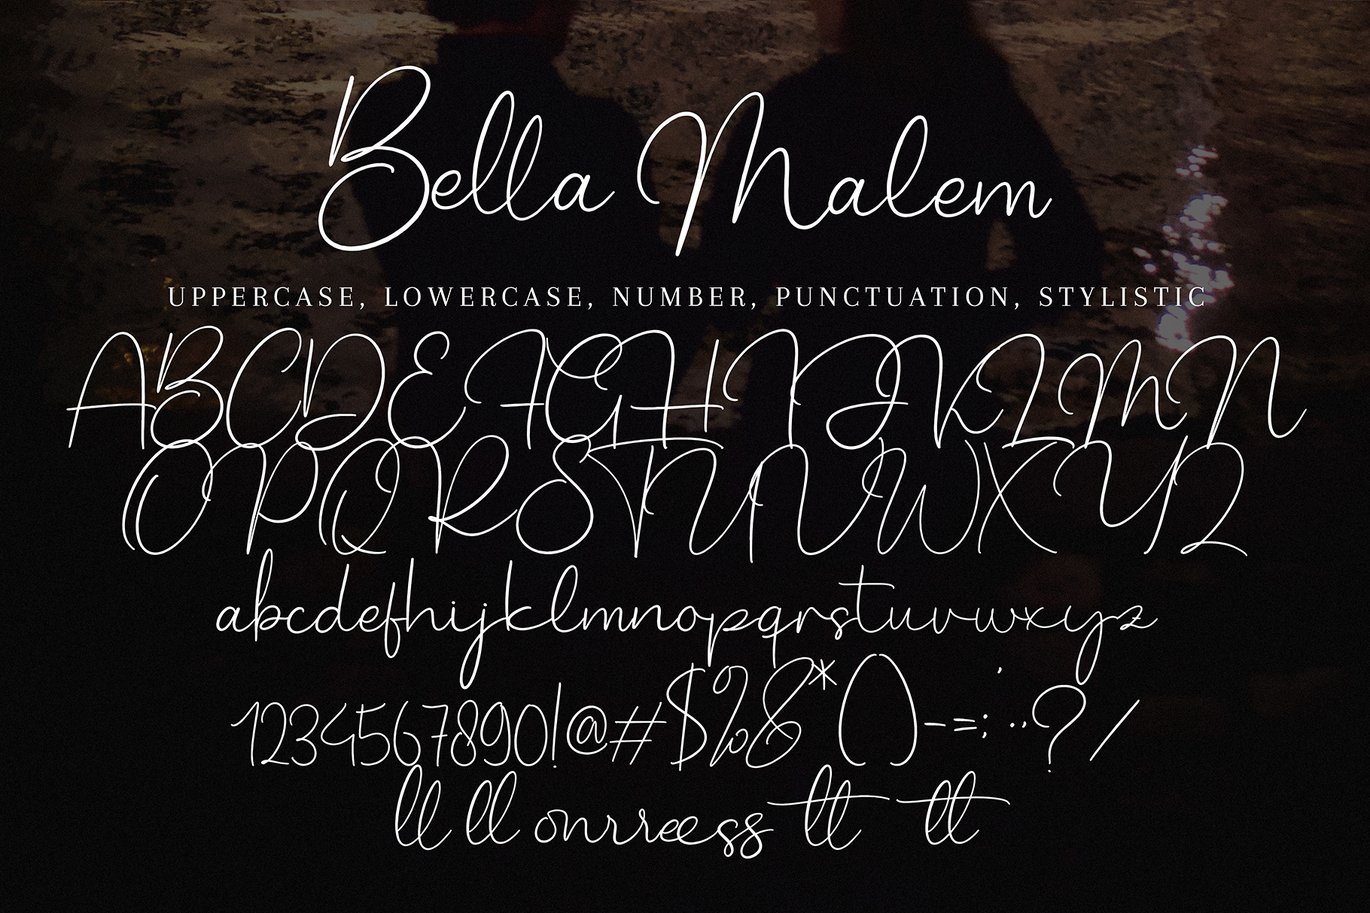 Bella Malem
UPPERCASE, LOWERCASE, NUMBER, PUNCTUATION, STYLISTIC
ABCDEFGHIJKLMN
OPQRSTUVWXYZ
abcdefhijklmnopqrstuvwxyz
1234567890!@#$%&*()-=;'..?/
ll ll onrreess tt tt